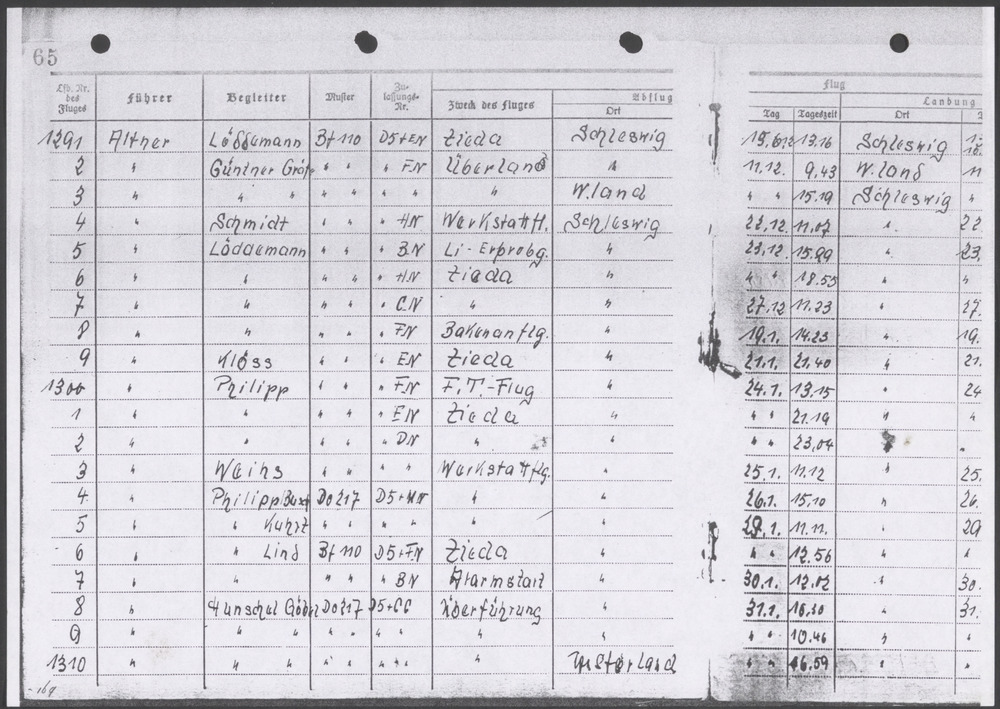 65
Lfd. Nr. des Fluges Führer Begleiter Muster Zu-lassungs-Nr. Zweck des Fluges Abflug Ort Flug Tag Tageszeit Landung Ort
1291 Altner Löddemann Bf 110 D5+EN Zieda Schleswig 13.16 Schleswig
2 " Günther Gräf " " " FN Überland " 11.12. 9.43 W.land 11
3 " " " " " " " " W.land " " 15.19 Schleswig "
4 " Schmidt " " " HN Werkstattfl. Schleswig 22.12. 11.07 " 22.
5 " Löddemann " " " BN Li-Erprobg. " 23.12. " 23.
6 " " " " " HN Zieda " " " 18.53 " "
7 " " " " " CN " " 27.12 11.23 " 27.
8 " " " " " FN Bakenanflg. " 19.1. 14.23 " 19.
9 " Klöss " " " EN Zieda " 21.1. 21.40 " 21.
1300 " Philipp " " " FN F.T.-Flug " 24.1. 13.15 " 24
1 " " " " " EN Zieda " " " 21.19 " "
2 " " " " " DN " " " " 23.04 "
3 " Weihs " " " " Werkstattflg. " 25.1. 11.12 " 25.
4 " Philipp Do 217 D5+ " " 26.1. 15.10 " 26.
5 " " Kuhrt " " " " " " 29.1. 11.11. " 29
6 " " Lind Bf 110 D5+FN Zieda " " " 12.56 " "
7 " " " " " BN Alarmstart " 30.1. 12.02 " 30.
8 " Hunschel Göbel Do 217 D5+CC Überführung " 31.1. 16.30 " 31.
9 " " " " " " " " " " " 10.46 " "
1310 " " " " " " " " Westerland " " 16.59 " "